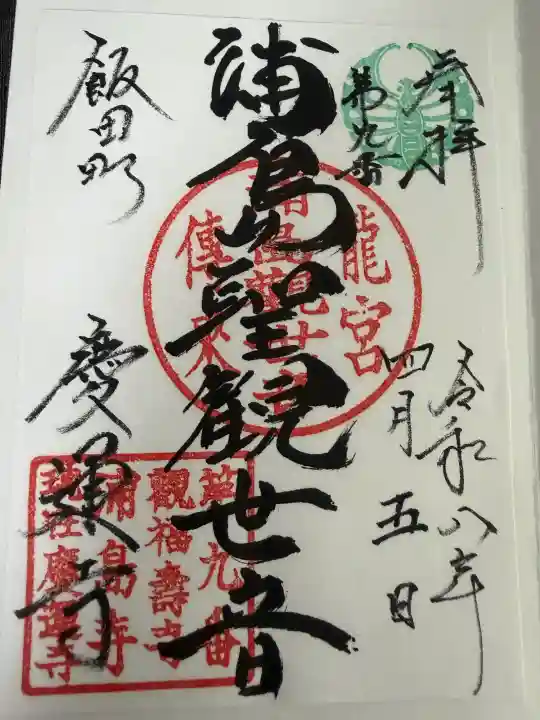 奉拝
第九番
令和八年
四月五日
浦島聖観世音
龍宮
浦島観世音
傳来
飯田町
慶運寺
第九番
観福壽寺
浦島寺
慶運寺